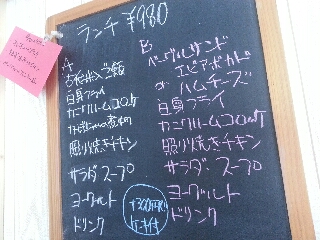 ランチ ¥980
A
古代米入ご飯
白身フライ
カニクリームコロッケ
かぼちゃの煮物
照り焼きチキン
サラダ スープ
ヨーグルト
ドリンク
B
ベーグルサンド
エビアボカド
or ハムチーズ
白身フライ
カニクリームコロッケ
照り焼きチキン
サラダ、スープ
ヨーグルト
ドリンク
+300円で
ケーキ付